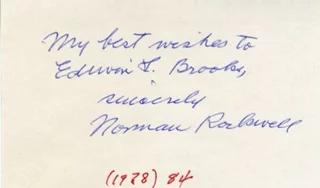 My best wishes to
Edwin L. Brooks,
sincerely
Norman Rockwell
(1978) 84